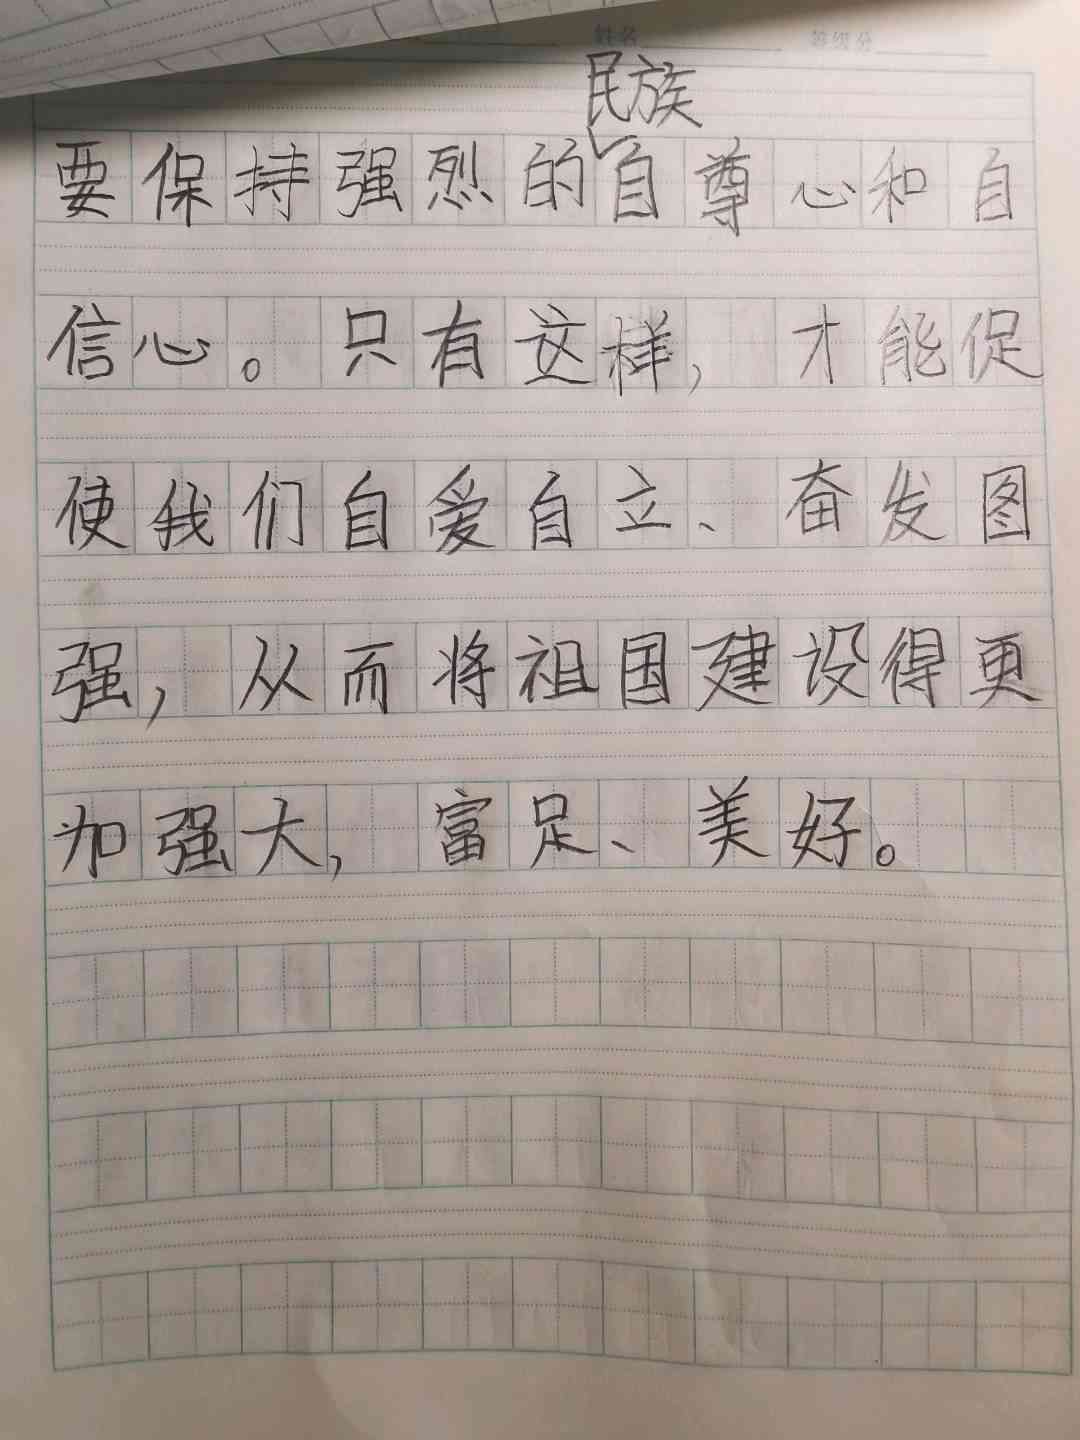 姓名
等级分
民族
要保持强烈的自尊心和自
信心。只有这样，才能促
使我们自爱自立、奋发图
强，从而将祖国建设得更
加强大，富足、美好。